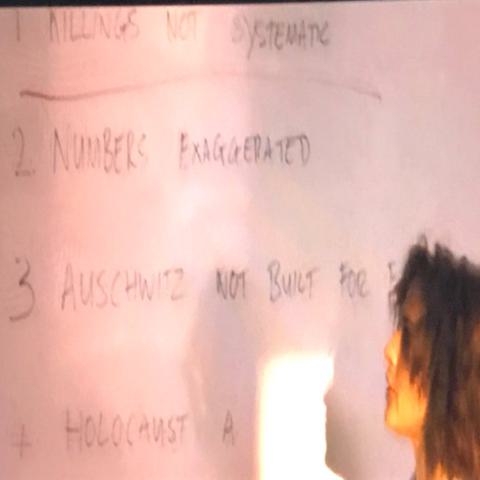 1 KILLINGS NOT SYSTEMATIC
2. NUMBERS EXAGGERATED
3 AUSCHWITZ NOT BUILT FOR
HOLOCAUST A